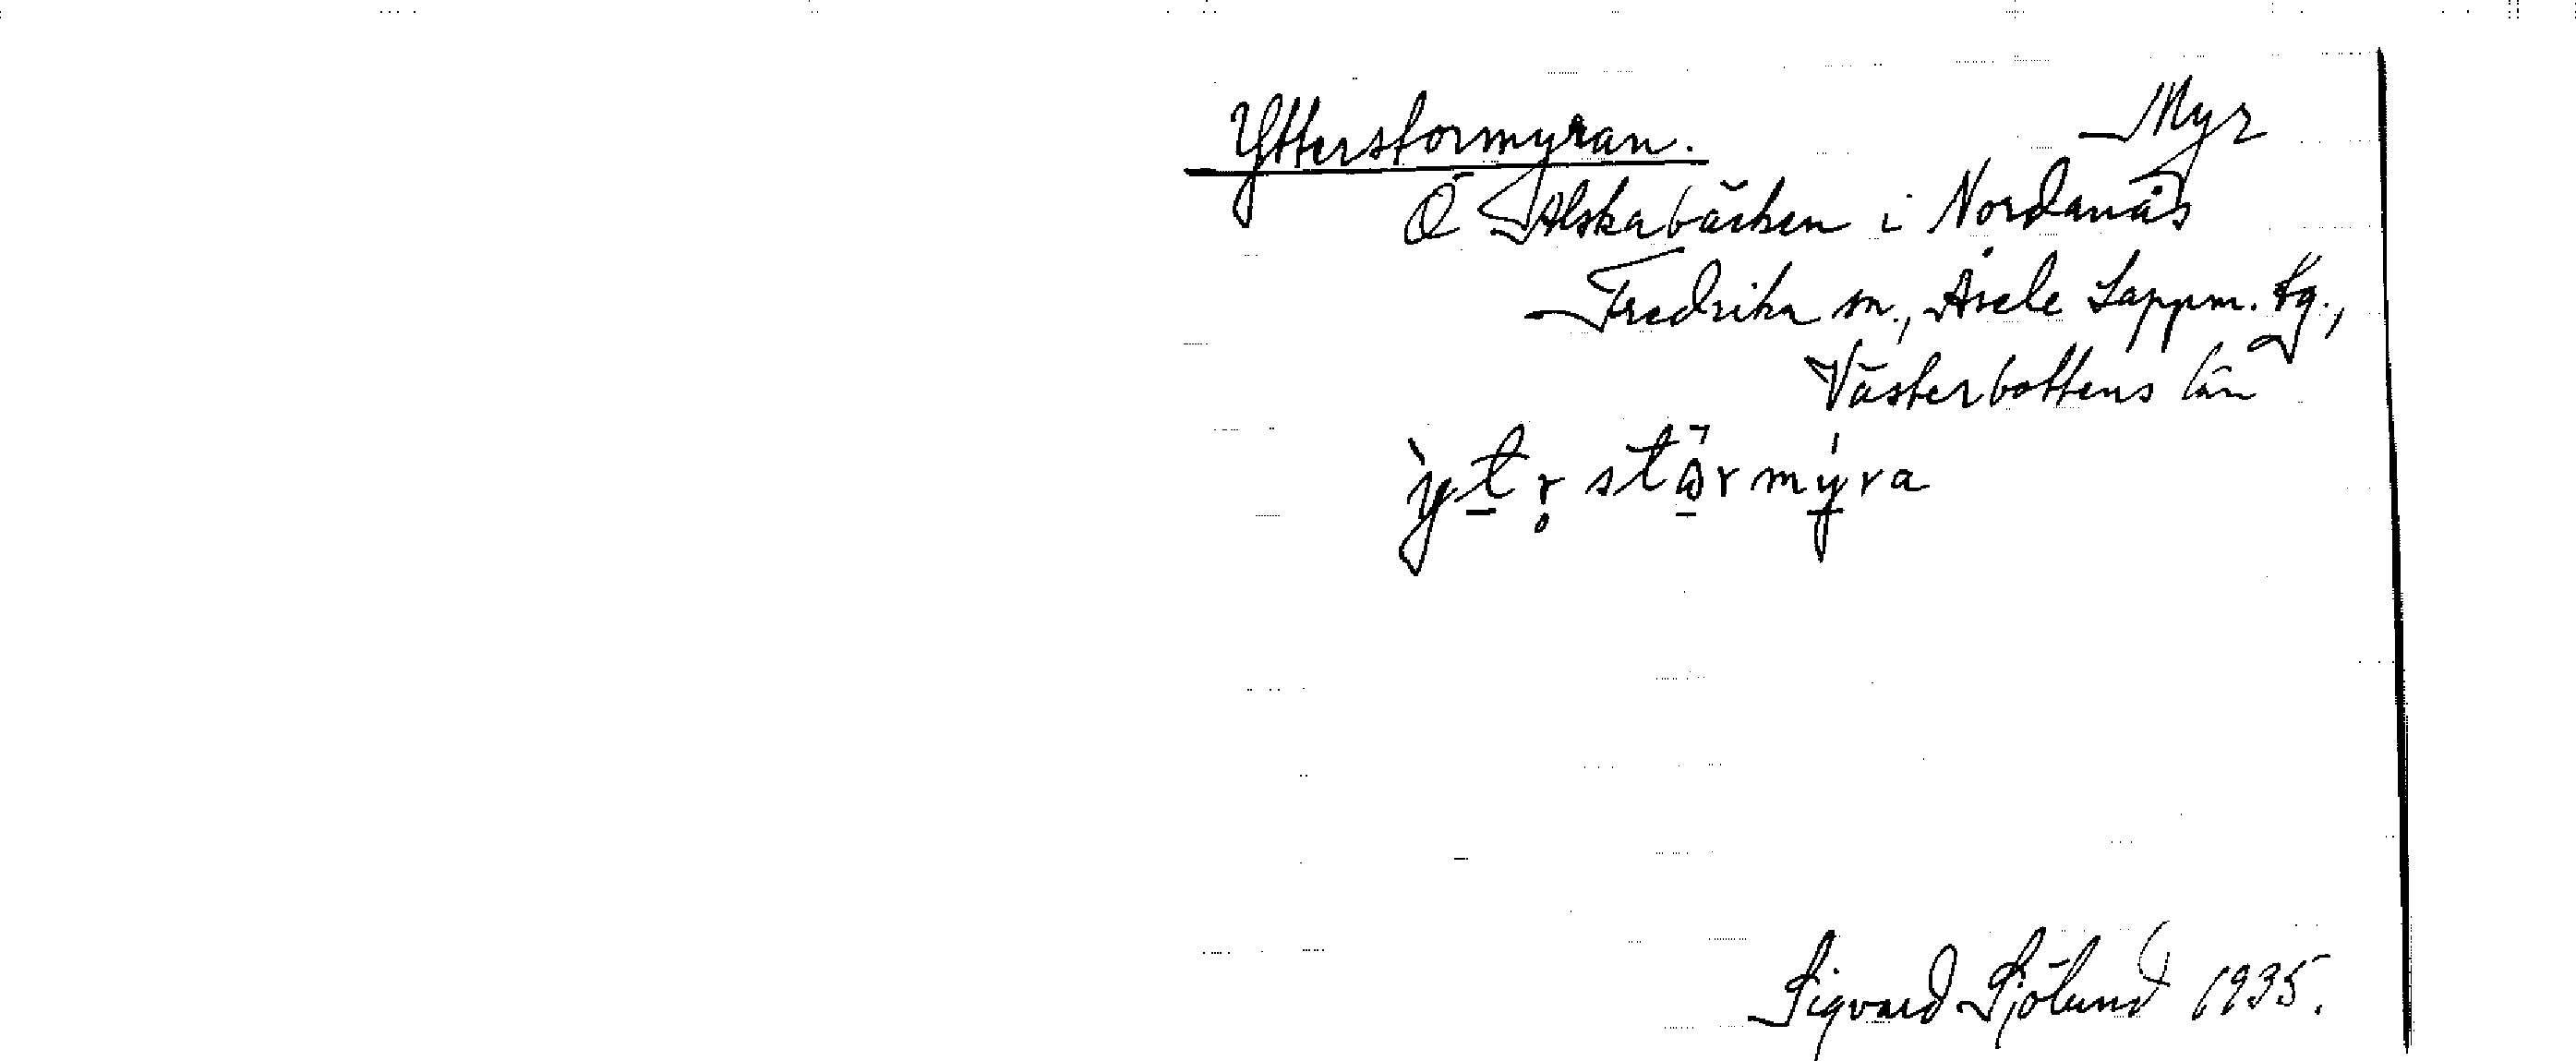 Ytterstormyran. Myr
Ö Alskabäcken i Nordanås
Fredrika sn., Åsele Lappm. tg.,
Västerbottens län
ỳt̠r̥stö̠rmý̠ra
Sigvard Sjölund 1935.